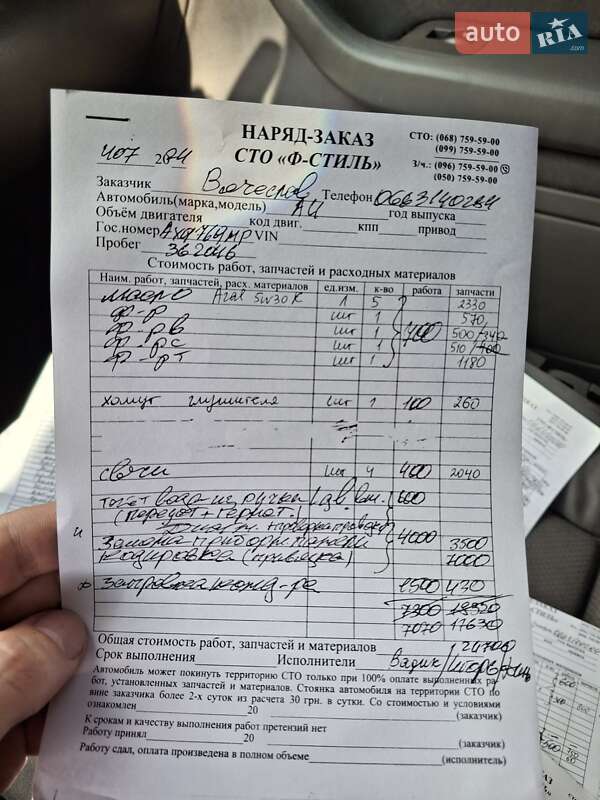 auto RIA .com
НАРЯД-ЗАКАЗ
СТО «Ф-СТИЛЬ»
СТО: (068) 759-59-00
(099) 759-59-00
З/ч.: (096) 759-59-00
(050) 759-59-00
407 2024
Заказчик Вячеслав Телефон
Автомобиль(марка,модель) год выпуска
Объём двигателя код двиг. кпп привод
Гос.номер VIN
Пробег
Стоимость работ, запчастей и расходных материалов
Наим. работ, запчастей, расх. материалов ед.изм. к-во работа запчасти
масло Aral 5w30 К 1 5 2330
ф-р шт 1 570
ф-р в шт 1 700 500/340
ф-р с шт 1 510/400
ф-р т шт 1 1180
хомут глушителя шт 1 100 260
свечи шт 4 400 2040
600
(передот + гермот.)
Диагн. + проверка проводки
Замена прибор панели 4000 3500
Кодировка (привязка) 7000
Заправка конд-ра 1500 430
7300 18350
7070 17630
Общая стоимость работ, запчастей и материалов 24700
Срок выполнения Исполнители Вадим/Игорь/
Автомобиль может покинуть территорию СТО только при 100% оплате выполненных ра-
бот, установленных запчастей и материалов. Стоянка автомобиля на территории СТО по
вине заказчика более 2-х суток из расчета 30 грн. в сутки. Со стоимостью и условиями
ознакомлен 20 (заказчик)
К срокам и качеству выполнения работ претензий нет
Работу принял 20 (заказчик)
Работу сдал, оплата произведена в полном объеме (исполнитель)